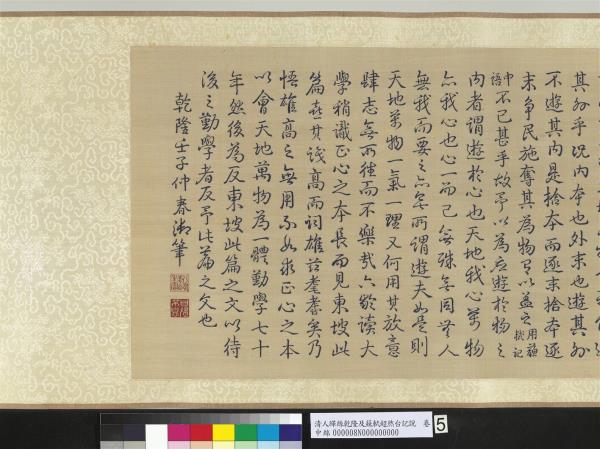 其外乎況内本也外末也遊其外
不遊其内是捨本而逐末捨本逐
末爭民施奪其為物有以蓋之用蘇軾記
中語不已甚乎故予以為應遊於物之
内者謂遊於心也天地我心萬物
亦我心也心一而已無殊無同無人
無我而要之亦無所謂遊夫如是則
天地萬物一氣一理又何用其放意
肆志無所往而不樂哉六齡讀大
學稍識正心之本長而見東坡此
篇喜其識高而詞雄茲耄耋矣乃
悟雄高之無用而不如求正心之本
以會天地萬物為一體勤學七十
年然後為反東坡此篇之文以待
後之勤學者反予此篇之文也
乾隆壬子仲春御筆
清人緙絲乾隆反蘇軾超然台記說 卷
中絲 000008N000000000
5